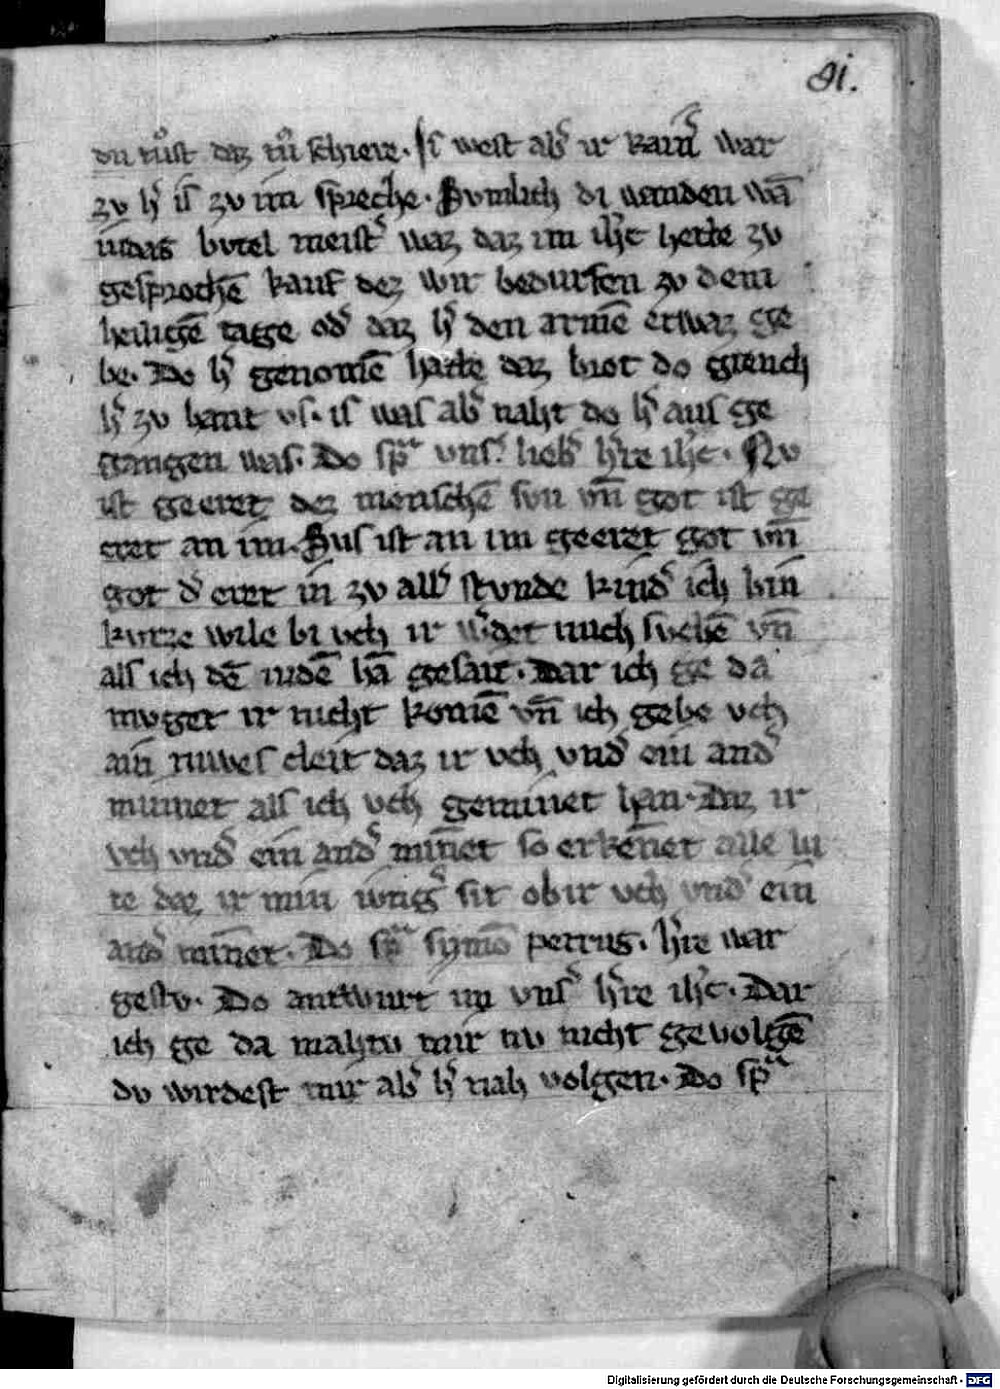 91.
du tuͦst daz tuͦ schiere. Iſ west abˀ ir kainˀ war
zv hˀ iſ zv im ſpreche. Svmlich di wanden wā
iudas bvtel meiſtˀ waz daz im ihˀc hette zv
geſprochē kauf dez wir bedurfen zv dem
heiligē tagge odˀ daz hˀ den armē etwaz ge
be. Do hˀ genomē hatte daz brot do giench
hˀ zv hant vſ. iſ waſ abˀ naht do hˀ auſ ge
gangen was. Do ſpᵃ vnſˀ liebˀ hˀre ihˀc. Nv
iſt geeret dez menſchē ſvn vn̄ got iſt ge
eret an im. Svſ iſt an im geeret got vn̄
got dˀ eret in zv allˀ ſtvnde kindˀ ich bin
kvrze wile bi vch ir wˀdet mich ſvchē vn̄
alſ ich dē iudē hā geſait. Dar ich ge da
mvget ir nicht komē vn̄ ich gebe vch
ain nuveſ cleit daz ir vch vndˀ ein andˀ
minnet alſ ich vch geminnet han. Daz ir
vch vndˀ ein andˀ min̄et ſo erken̄et alle lu
te daz ir min iungˀ ſit ob ir vch vndˀ ein
andˀ min̄et. Do ſpᵃ ſymō petrus. hˀre war
geſtv. Do antwurt im vnſˀ hˀre ihˀc. Dar
ich ge da mahtv mir nv nicht gevolgē
dv wirdeſt mir abˀ hˀ nah volggen. Do ſpᵃ
Digitalisierung gefördert durch die Deutsche Forschungsgemeinschaft - DFG